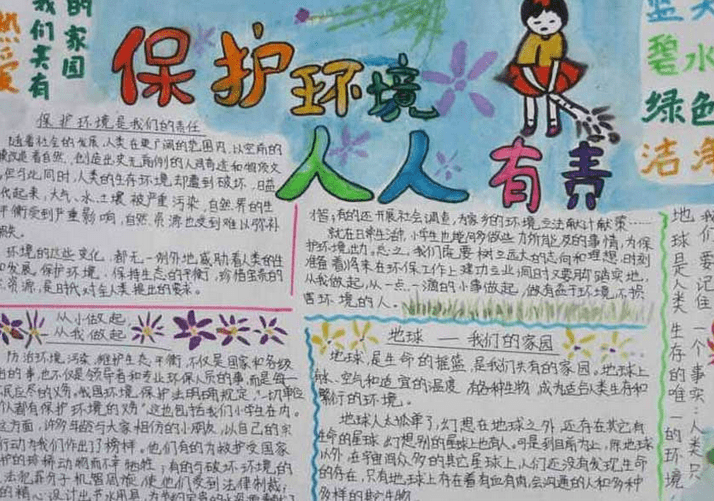 热爱
我们共有
的家园
保护环境
人人有责
蓝天
碧水
绿色
洁净
保护环境是我们的责任
随着社会的发展,人类在更广阔的范围内,以空前的
改造着自然,创造出史无前例的人间奇迹和物质文
但与此同时,人类的生存环境却遭到破坏,日益
起来,大气、水、土壤被严重污染,自然界的生
平衡受到严重影响,自然资源也受到难以弥补
损失。
环境的这些变化,都无一例外地威胁着人类的生
和发展。保护环境,保持生态的平衡,珍惜宝贵的
资源,是时代对全人类提出的要求。
从小做起
从我做起
防治环境污染,维护生态平衡,不仅是国家和各级
的事,也不仅是领导者和专业环保人员的事,而是每一
民应尽的义务。我国环境保护法明确规定,“一切单位
个人都有保护环境的义务”这也包括我们小学生在内。
方面,许多年龄与大家相仿的小朋友,以自己的实
行动为我们作出了榜样。他们有的为救护受国家
护的珍稀动物而不牺牲;有的与破坏环境的
法犯罪分子机智周旋,使他们受到法律制裁;
精心设计出节水用具,为
指;有的还开展社会调查,为家乡的环境立法献计献策……
就在日常生活中,小学生也能够多做些力所能及的事情,为保
护环境出力。总之,我们既要树立远大的志向和理想,时刻
准备着将来在环保工作上建功立业,同时又要脚踏实地,
从我做起,从一点一滴的小事做起,做有益于环境,不损
害环境的人。
地球——我们的家园
地球,是生命的摇篮,是我们共有的家园。地球上
空气和适宜的温度,有各种生物,成为适合人类生存和
繁衍的环境。
地球人太孤单了,幻想在地球之外,还存在其它有
生命的星球,幻想别的星球上也有人。可是到目前为止,除地球
以外,在宇宙间众多的其它星球上,人们还没有发现生命
的存在,只有地球上存在着有血有肉,会沟通的人和多种
多样的其它生物。
我们要记住一个事实:人类只
地球是人类生存的唯一的环境